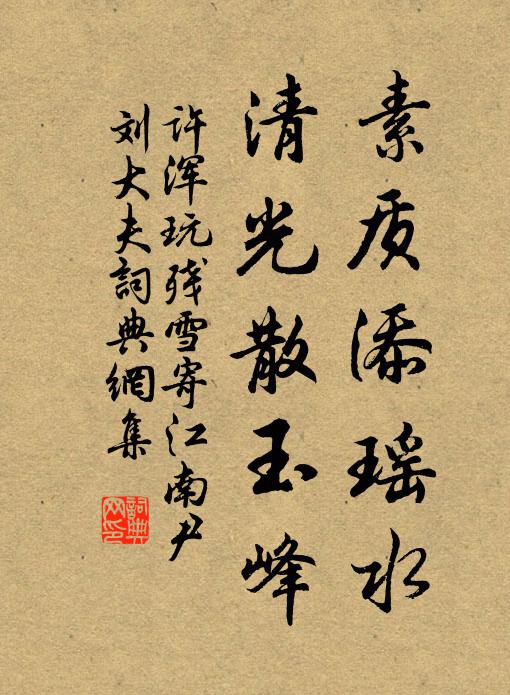 素质添瑶水
清光散玉峰
许浑玩残雪寄江南尹
刘大夫詞典網集
詞典网印